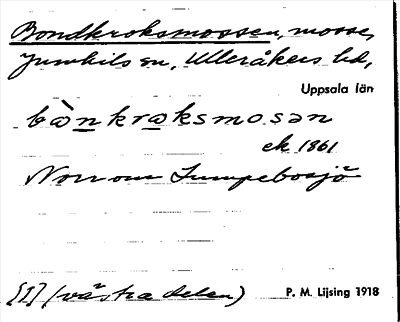 Bondkroksmossen, mosse,
Jumkils sn, Ulleråkers hd,
Uppsala län
bònkraksmosan
ek 1861
Norr om Lumpebosjö
[I] (västra delen)
P. M. Lijsing 1918